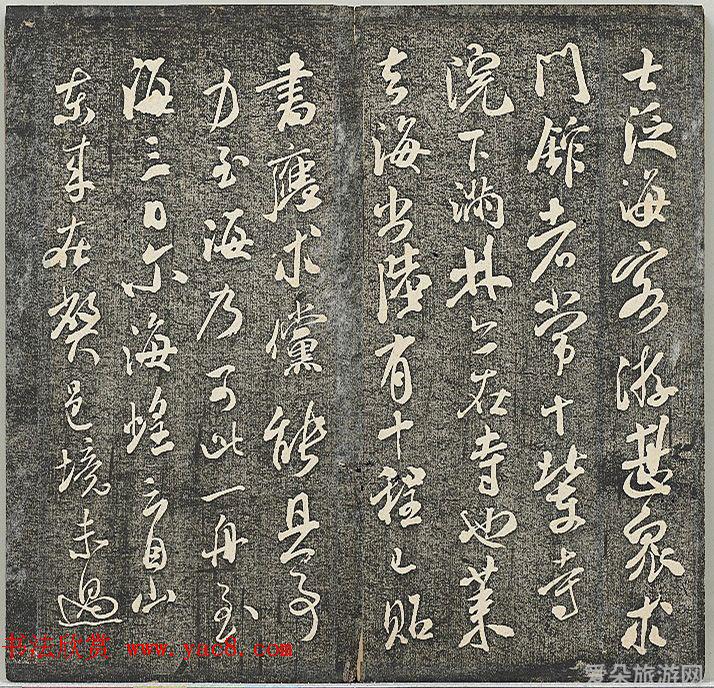 士泛海客游甚衆求
門館者常十輩寺
院下滿林亦在寺也萊
去海出陸有十程已貽
書應求儻能具事
力至海乃可此一舟至
海三日尔海蝗云自山
東來在弊邑境未過
书法欣赏 www.yac8.com
爱朵旅游网